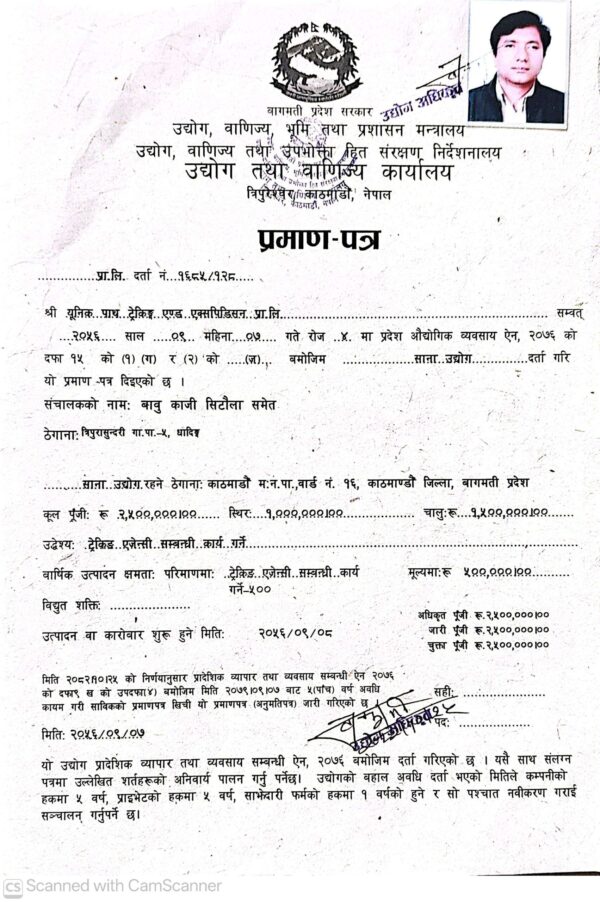 बागमती प्रदेश सरकार
उद्योग अधिकृत
उद्योग, वाणिज्य, भूमि तथा प्रशासन मन्त्रालय
उद्योग, वाणिज्य तथा उपभोक्ता हित संरक्षण निर्देशनालय
उद्योग तथा वाणिज्य कार्यालय
त्रिपुरेश्वर, काठमाडौं, नेपाल
प्रमाण-पत्र
..............प्रा.लि. दर्ता नं.१६८५/१२८.....
श्री यूनिक पाथ ट्रेकिङ्ग एण्ड एक्सपिडिसन प्रा.लि................ सम्वत्
....२०५६.... साल ....०९... महिना.०७.... गते रोज ..४. मा प्रदेश औद्योगिक व्यवसाय ऐन, २०७६ को
दफा १५ को (१) (ग) र (२) को .....(ज).. बमोजिम ................साना उद्योग............दर्ता गरि
यो प्रमाण -पत्र दिइएको छ ।
संचालकको नामः बाबु काजी सिटौला समेत
ठेगानाः त्रिपुरासुन्दरी गा.पा.-५, धादिङ्ग
..........साना उद्योग रहने ठेगानाः काठमाडौं म.न.पा.,वार्ड नं. १६, काठमाण्डौं जिल्ला, बागमती प्रदेश
कूल पूँजीः रू २,५००,०००।००...... स्थिरः...१,०००,०००।००........... चालुःरू...१,५००,०००।००
उद्धेश्यः ..ट्रेकिङ एजेन्सी सम्बन्धी कार्य गर्ने
वार्षिक उत्पादन क्षमताः परिमाणमाः ..ट्रेकिङ एजेन्सी सम्बन्धी कार्य मूल्यमाःरू ५००,०००।००
गर्ने-५००
विद्युत शक्तिः ...................
अधिकृत पूँजी रू.२,५००,०००।००
उत्पादन वा कारोवार शुरू हुने मितिः २०५६/०९/०८ जारी पूँजी रू.२,५००,०००।००
चुक्ता पूँजी रू.२,५००,०००।००
मिति २०८२।१०।२५ को निर्णयानुसार प्रादेशिक व्यापार तथा व्यवसाय सम्बन्धी ऐन २०७६
को दफा९ ख को उपदफा(४) बमोजिम मिति २०७९।०९।०७ बाट ५(पाँच) वर्ष अवधि
कायम गरी साविकको प्रमाणपत्र खिची यो प्रमाणपत्र (अनुमतिपत्र) जारी गरिएको छ । सहीः ..................
उद्योग अधिकृत पदः ..................
मितिः २०५६/०९/०७
यो उद्योग प्रादेशिक व्यापार तथा व्यवसाय सम्बन्धी ऐन, २०७६ बमोजिम दर्ता गरिएको छ । यसै साथ संलग्न
पत्रमा उल्लेखित शर्तहरूको अनिवार्य पालन गर्नु पर्नेछ। उद्योगको बहाल अवधि दर्ता भएको मितिले कम्पनीको
हकमा ५ वर्ष, प्राइभेटको हकमा ५ वर्ष, साझेदारी फर्मको हकमा १ वर्षको हुने र सो पश्चात नवीकरण गराई
सञ्चालन् गर्नुपर्ने छ।
CS Scanned with CamScanner